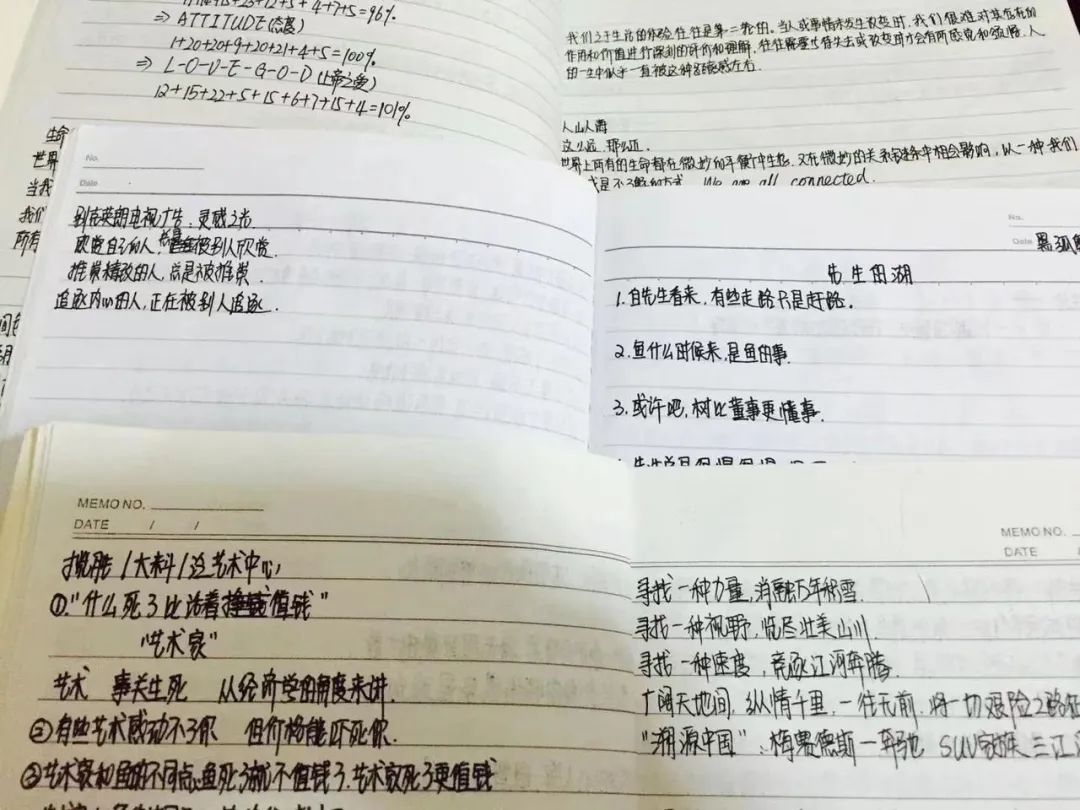 +12+5+4+7+5=96%
⇒ ATTITUDE(态度)
1+20+20+9+20+21+4+5=100%
⇒ L-O-V-E-G-O-D(上帝之爱)
12+15+22+5+15+6+7+15+4=101%
我们对于生活的体验往往是第二轮的。当人或事情未发生改变时,我们很难对其存在的
作用和价值进行深刻的评价和理解,往往需要忙待失去或改变时才会有所感觉和领悟。人
的一生中似乎一直被这种 左右.
人山人海
这么远 那么近.
世界上所有的生命都在微妙的平衡中生 . 又在微妙的关系链条中相会影响,以一种我们
或是不了解的方式. We are all connected.
生命
世界
当我
我们
所有
No.
Date
别克英朗电视广告.灵感之光
欣赏自己的人,总是被别人欣赏.
推崇精致的人,总是被推崇.
追逐内心的人,正在被别人追逐.
No.
Date 黑孤
先生的湖
1.自先生看来,有些走路只是赶路.
2.鱼什么时候来,是鱼的事.
3.或许吧,树比董事更懂事.
MEMO NO.
DATE / /
揽胜/大料/边艺术中心/
①."什么死了比活着 值钱"
"艺术家"
艺术 事关生死 从经济学的角度来讲.
②有些艺术感动不了你 但价格能吓死你.
③艺术家和鱼的不同点,鱼死了就不值钱了.艺术家死了更值钱
MEMO NO.
DATE /
寻找一种力量,消融万年积雪.
寻找一种视野,览尽壮美山川.
寻找一种速度,竞逐江河奔腾.
广阔天地间,纵情千里,一往无前,将一切艰险之路征
"溯源中国"、梅赛德斯-奔驰 SUV家族 三江